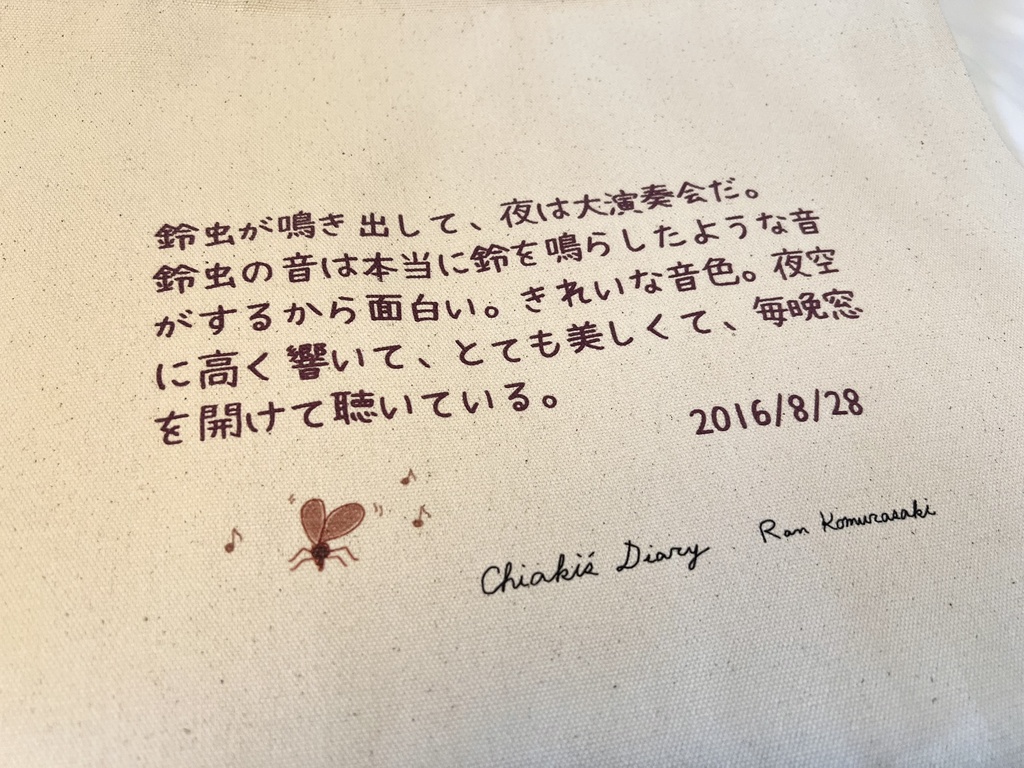 鈴虫が鳴き出して、夜は大演奏会だ。
鈴虫の音は本当に鈴を鳴らしたような音
がするから面白い。きれいな音色。夜空
に高く響いて、とても美しくて、毎晩窓
を開けて聴いている。
2016/8/28
Chiaki's Diary Ran Komurasaki